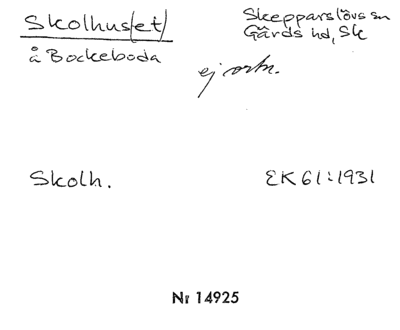 Skolhus/et/
Skepparslövs sn
Gärds hd, Sk
å Bockeboda
ej ortn.
Skolh.
EK 61:1931
Nr 14925